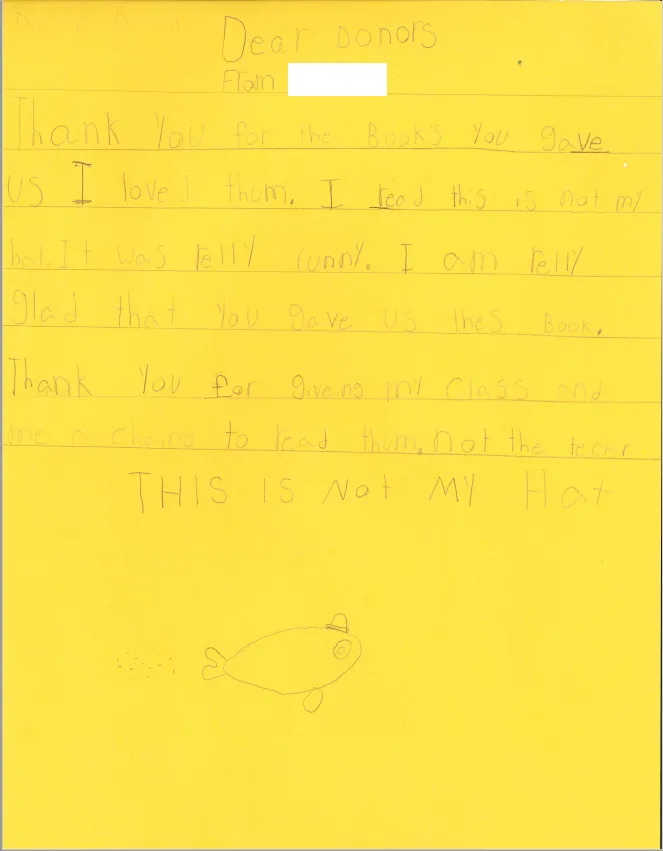 Dear Donors
From
Thank You for the Book's You gave
us I loved thum. I read this is not my
hat. It was relly funny. I am relly
glad that You gave us thes Book.
Thank You for giveing my class and
me a chans to read thum. not the techr
THIS IS Not MY Hat